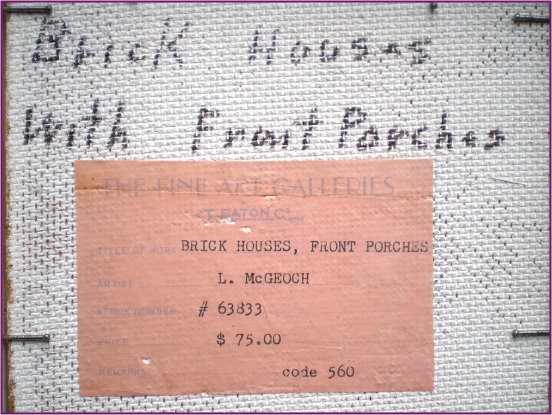 Brick Houses
With Front Porches
THE FINE ART GALLERIES
T. EATON Co.
TITLE OF WORK BRICK HOUSES, FRONT PORCHES
ARTIST L. McGEOCH
STOCK NUMBER # 63833
PRICE $ 75.00
REMARKS code 560